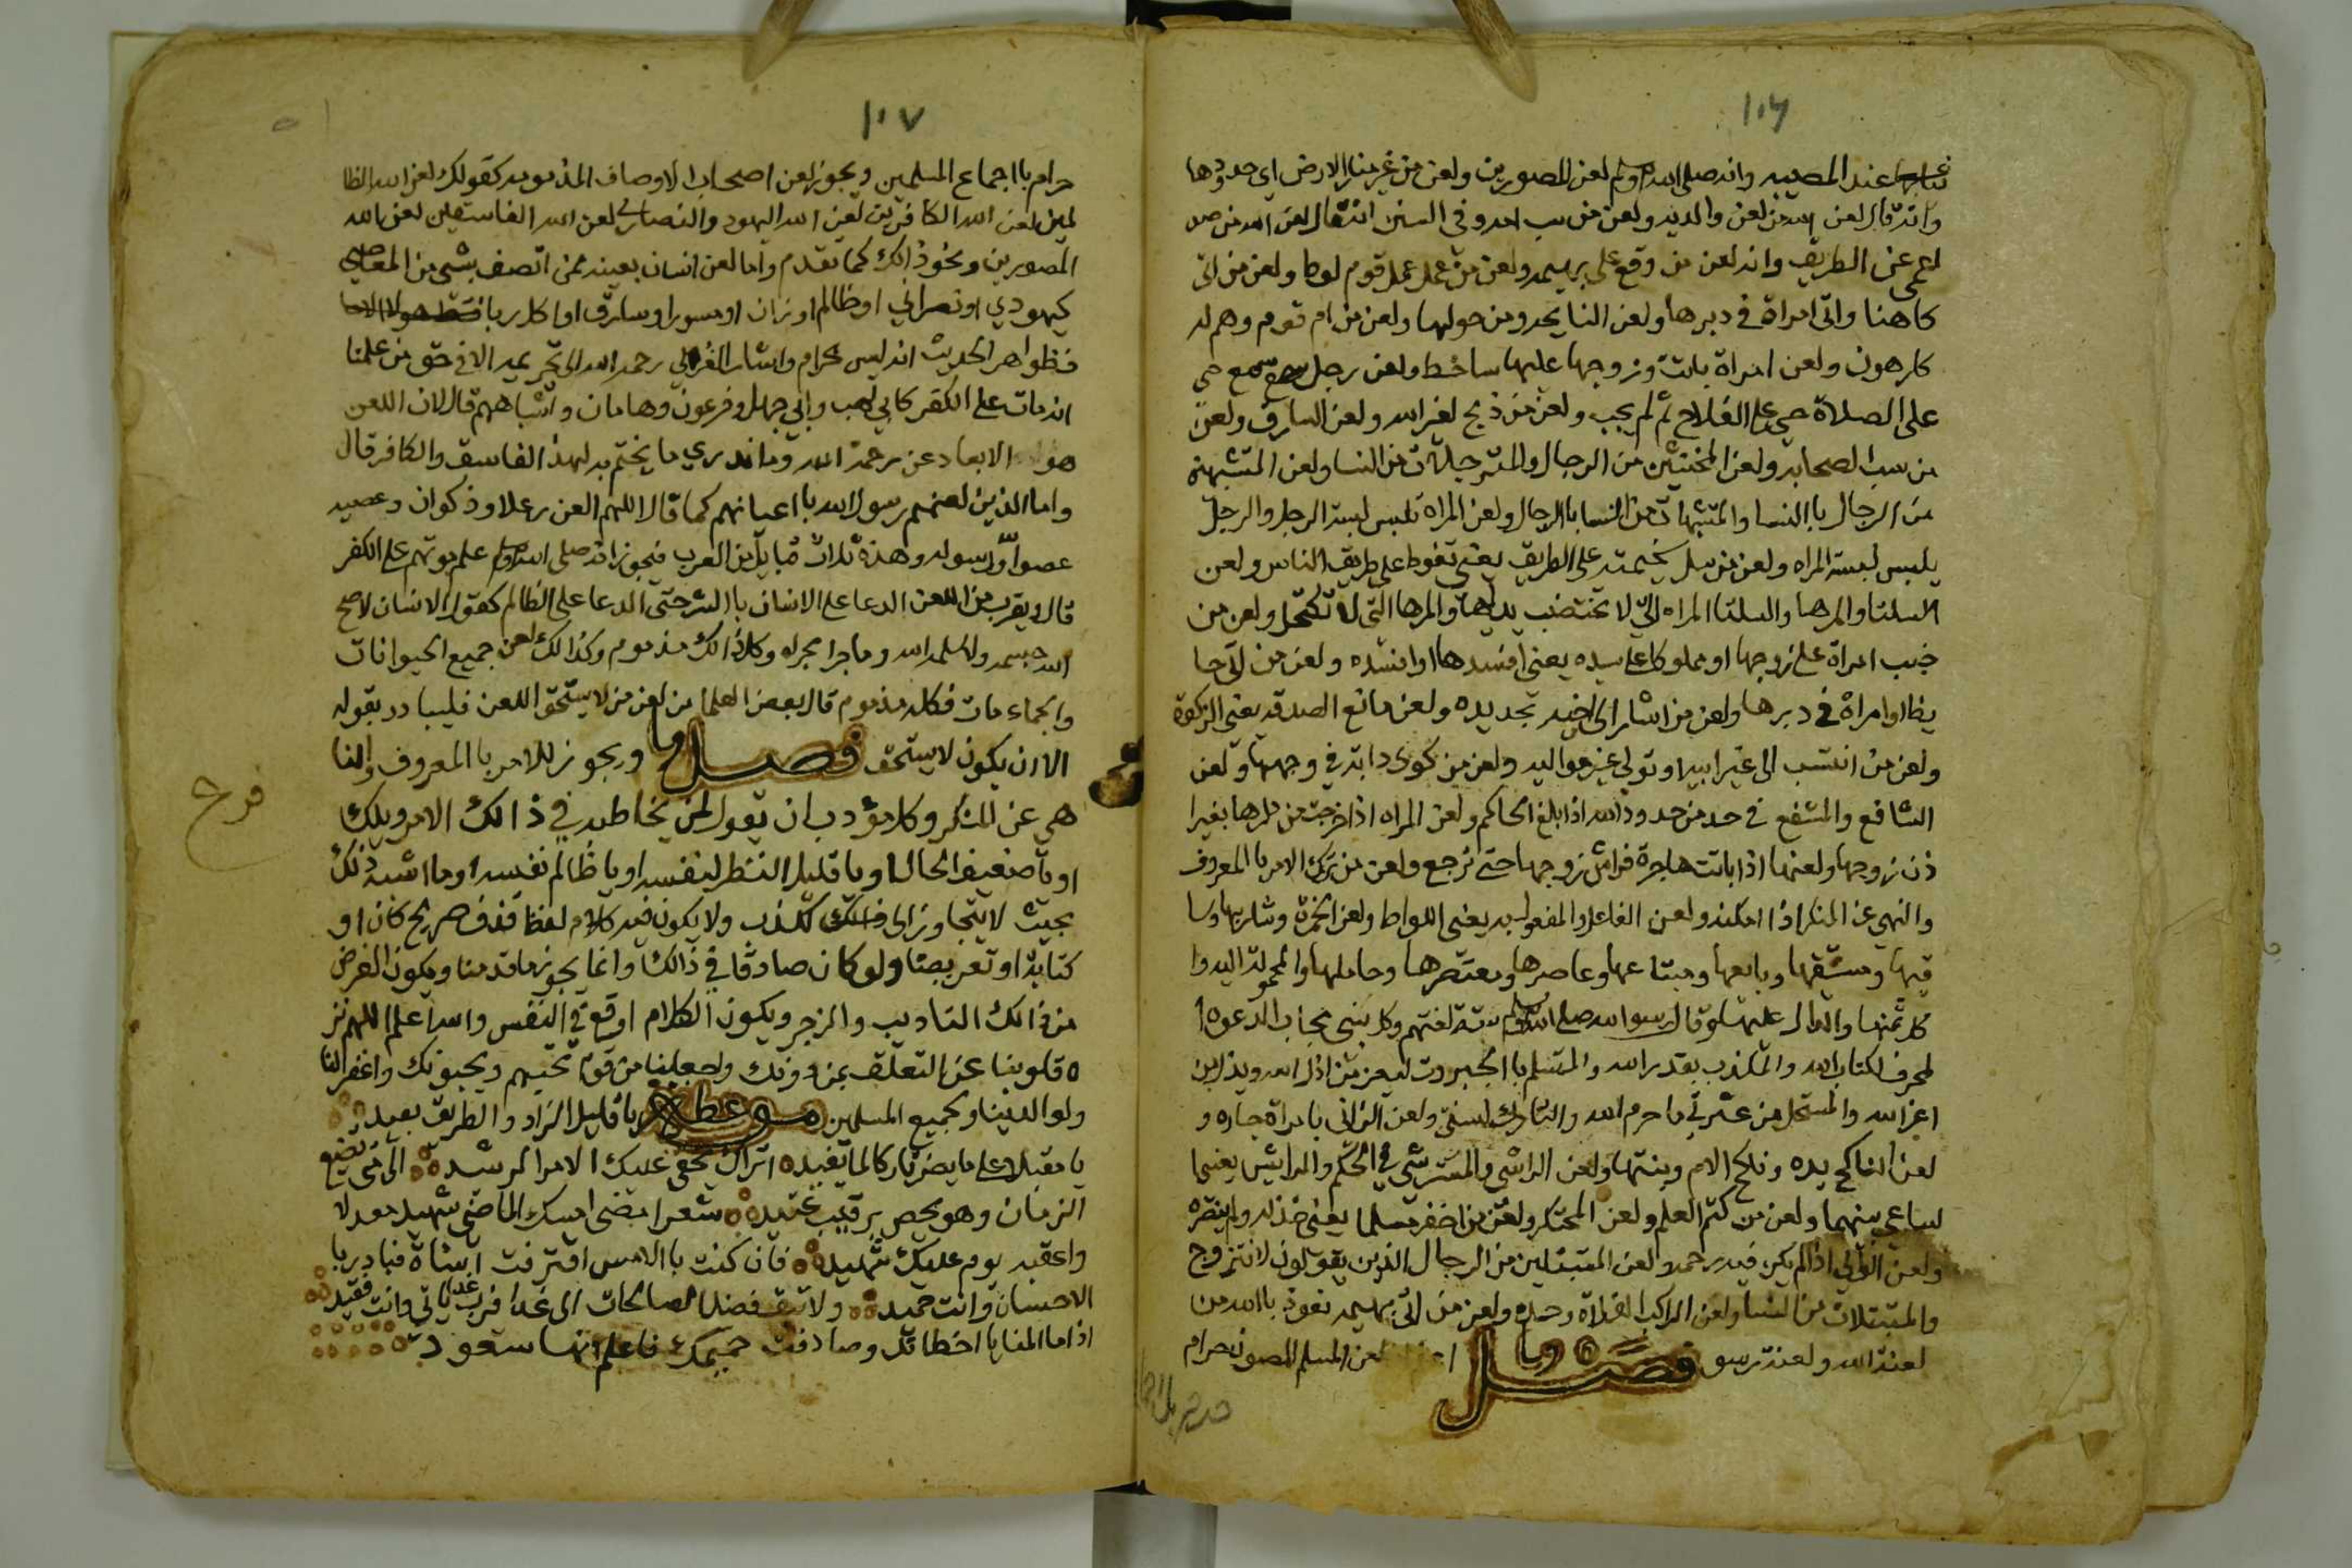 ١٠٦
ثيابها عند المصيبه وانه صلى الله وسلم لعن المصورين ولعن من غير منار الارض اي حدودها
وانه قال لعن الله من لعن والديه ولعن من سب احد وفي السنن انه قال لعن الله من
اعمى عن الطريق وانه لعن من وقع على بهيمه ولعن من عمل عمل قوم لوط ولعن من اتى
كاهنا واتى امراة في دبرها ولعن النايحه ومن حولها ولعن من ام قوم وهم له
كارهون ولعن امراة باتت وزوجها عليها ساخط ولعن رجل سمع حي
على الصلاة حي على الفلاح ثم لم يجب ولعن من ذبح لغير الله ولعن السارق ولعن
من سب الصحابه ولعن المخنثين من الرجال والمترجلات من النسا ولعن المتشبهة
من الرجال باالنسا والمتشبهات من النسا باالرجال ولعن المراه تلبس لبسة الرجل والرجل
يلبس لبسة المراه ولعن من سل سخيمته على الطريق يعني تغوط على طريق الناس ولعن
السلتا والمرها والسلتا المراه التي لا تختضب يديها والمرها التي لا تكتحل ولعن من
خبب امراة على زوجها او مملوكا على سيده يعني افسدها او افسده ولعن من اتى حا
يظا او امراة في دبرها ولعن من اشار الى اخيه بحديده ولعن مانع الصدقه يعني الزكوة
ولعن من انتسب الى غير ابيه او تولى غير مواليه ولعن من كوى دابته في وجهها ولعن
الشافع والمشفع في حد من حدود الله اذا بلغ الحاكم ولعن المراه اذا خرجت من دارها بغير ا
ذن زوجها ولعنها اذا باتت هاجرة فراش زوجها حتى ترجع ولعن من ترك الامر باالمعروف
والنهي عن المنكر اذا امكنه ولعن الفاعل والمفعول به يعني اللواط ولعن الخمرة وشاربها وسا
قيها ومسقيها وبايعها ومبتاعها وعاصرها ومعتصرها وحاملها والمحمولة اليه وا
كل ثمنها والدال عليها وقال رسول الله صلى الله وسلم ستة لعنتهم وكل نبي مجاب الدعوه ا
لمحرف لكتاب الله والمكذب بقدر الله والمتسلط باالجبروت ليعز من اذل الله ويذل من
اعز الله والمستحل من عترتي ما حرم الله والتارك لسنتي ولعن الزاني بامراة جاره و
لعن الناكح يده وناكح الام وبنتها ولعن الراشي والمرتشي في الحكم والرايش يعني ا
لساعي بينهما ولعن من كتم العلم ولعن المحتكر ولعن من اخفر مسلما يعني خذله ولم ينصره
ولعن الوالي اذا لم يكن فيه رحمه ولعن المتبتلين من الرجال الذين يقولون لا نتزوج
والمتبتلات من النسا ولعن الراكب الفلاة وحده ولعن من اتى بهيمه نعوذ باالله من
لعنة الله ولعنة رسو فصل لعن المسلم المصون حرام
١٠٧
حرام باجماع المسلمين ويجوز لعن اصحاب الاوصاف المذمومه كقولك لعن الله الظا
لمين لعن الله الكافرين لعن الله اليهود والنصارى لعن الله الفاسقين لعن الله
المصورين ونحو ذالك كما تقدم واما لعن انسان بعينه ممن اتصف بشي من المعاصي
كيهودي او نصراني او ظالم او زان او مصور او سارق او اكل ربا
فظواهر الحديث انه ليس بحرام واشار الغزالي رحمه الله الى تحريمه الا في حق من علمنا
انه مات على الكفر كابي لهب وابي جهل وفرعون وهامان واشباههم قال لان اللعن
هو الابعاد عن رحمة الله وما ندري ما يختم به لهذا الفاسق والكافر قال
واما الذين لعنهم رسول الله باعيانهم كما قال اللهم العن رعلا وذكوان وعصيه
عصوا الله ورسوله وهذه ثلاث قبايل من العرب فيجوز انه صلى الله وسلم علم موتهم على الكفر
قال ويقرب من اللعن الدعا على الانسان باالشر حتى الدعا على الظالم كقول الانسان لا اصح
الله جسمه ولا سلمه الله وما جرا مجراه وكل ذالك مذموم وكذالك لعن جميع الحيوانات
والجمادات فكله مذموم قال بعض العلما من لعن من لا يستحق اللعن فليبادر بقوله
الا ان يكون لا يستحق فصل ويجوز للامر باالمعروف والنا
هي عن المنكر وكل مؤدب ان يقول لمن يخاطبه في ذالك الامر ويلك
او يا ضعيف الحال او يا قليل النظر لنفسه او يا ظالم نفسه او ما اشبه ذلك
بحيث لا يتجاوز الى الكذب ولا يكون فيه كلام لفظ قذف صريح كان او
كناية او تعريضا ولو كان صادقا في ذالك وانما يجوز ما قدمنا ويكون الغرض
من ذالك التاديب والزجر ويكون الكلام اوقع في النفس والله اعلم اللهم نز
ه قلوبنا عن التعلق بمن دونك واجعلنا من قوم تحبهم ويحبونك واغفر لنا
ولوالدينا ولجميع المسلمين موعظه يا قليل الزاد والطريق بعيد
يا مقبلا على ما يضر تاركا لما يفيد اتراك يخفى عليك الامر الرشد الى متى تضيع
الزمان وهو يحصى برقيب عتيد شعرا مضى امسك الماضي شهيد معدلا
واعقبه يوم عليك شهيد فان كنت باالامس اقترفت اساة فبادر با
الاحسان وانت حميد ولا تبق فضل الصالحات الى غدا فرب غد ياتي وانت فقيد
اذا ما المنايا اخطاتك وصادفت حميمك فاعلم انها ستعود
فرح